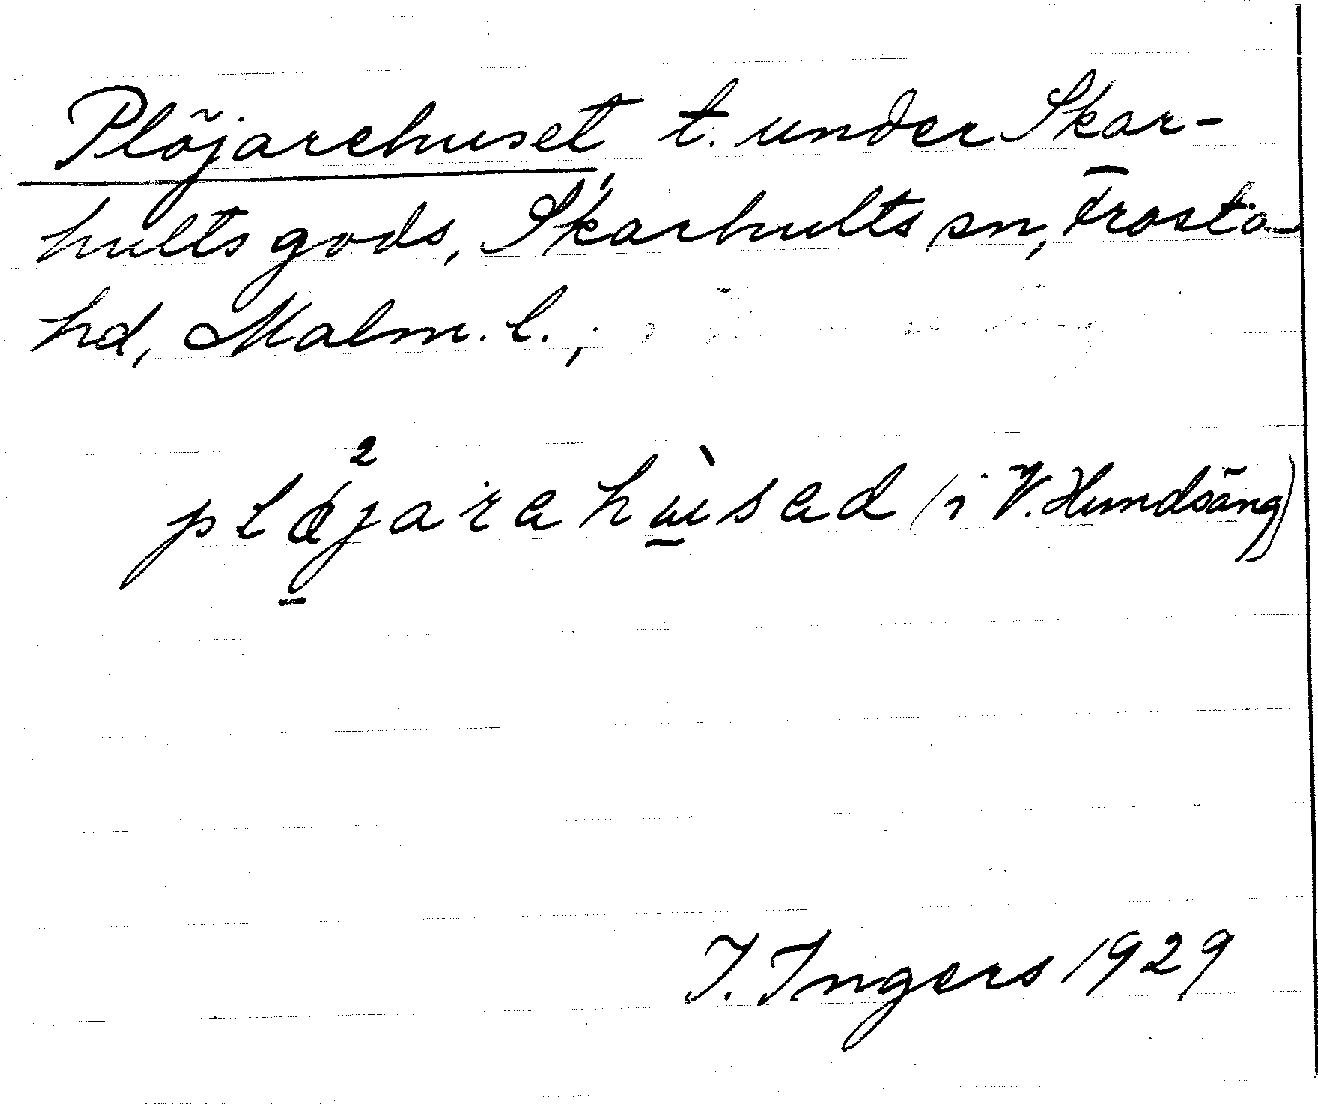 Plöjarehuset, t. under Skar-
hults gods, Skarhults sn, Frosta
hd, Malm. l.,
2
pløjarahùsad (i V. Hundsäng)
I. Ingers 1929